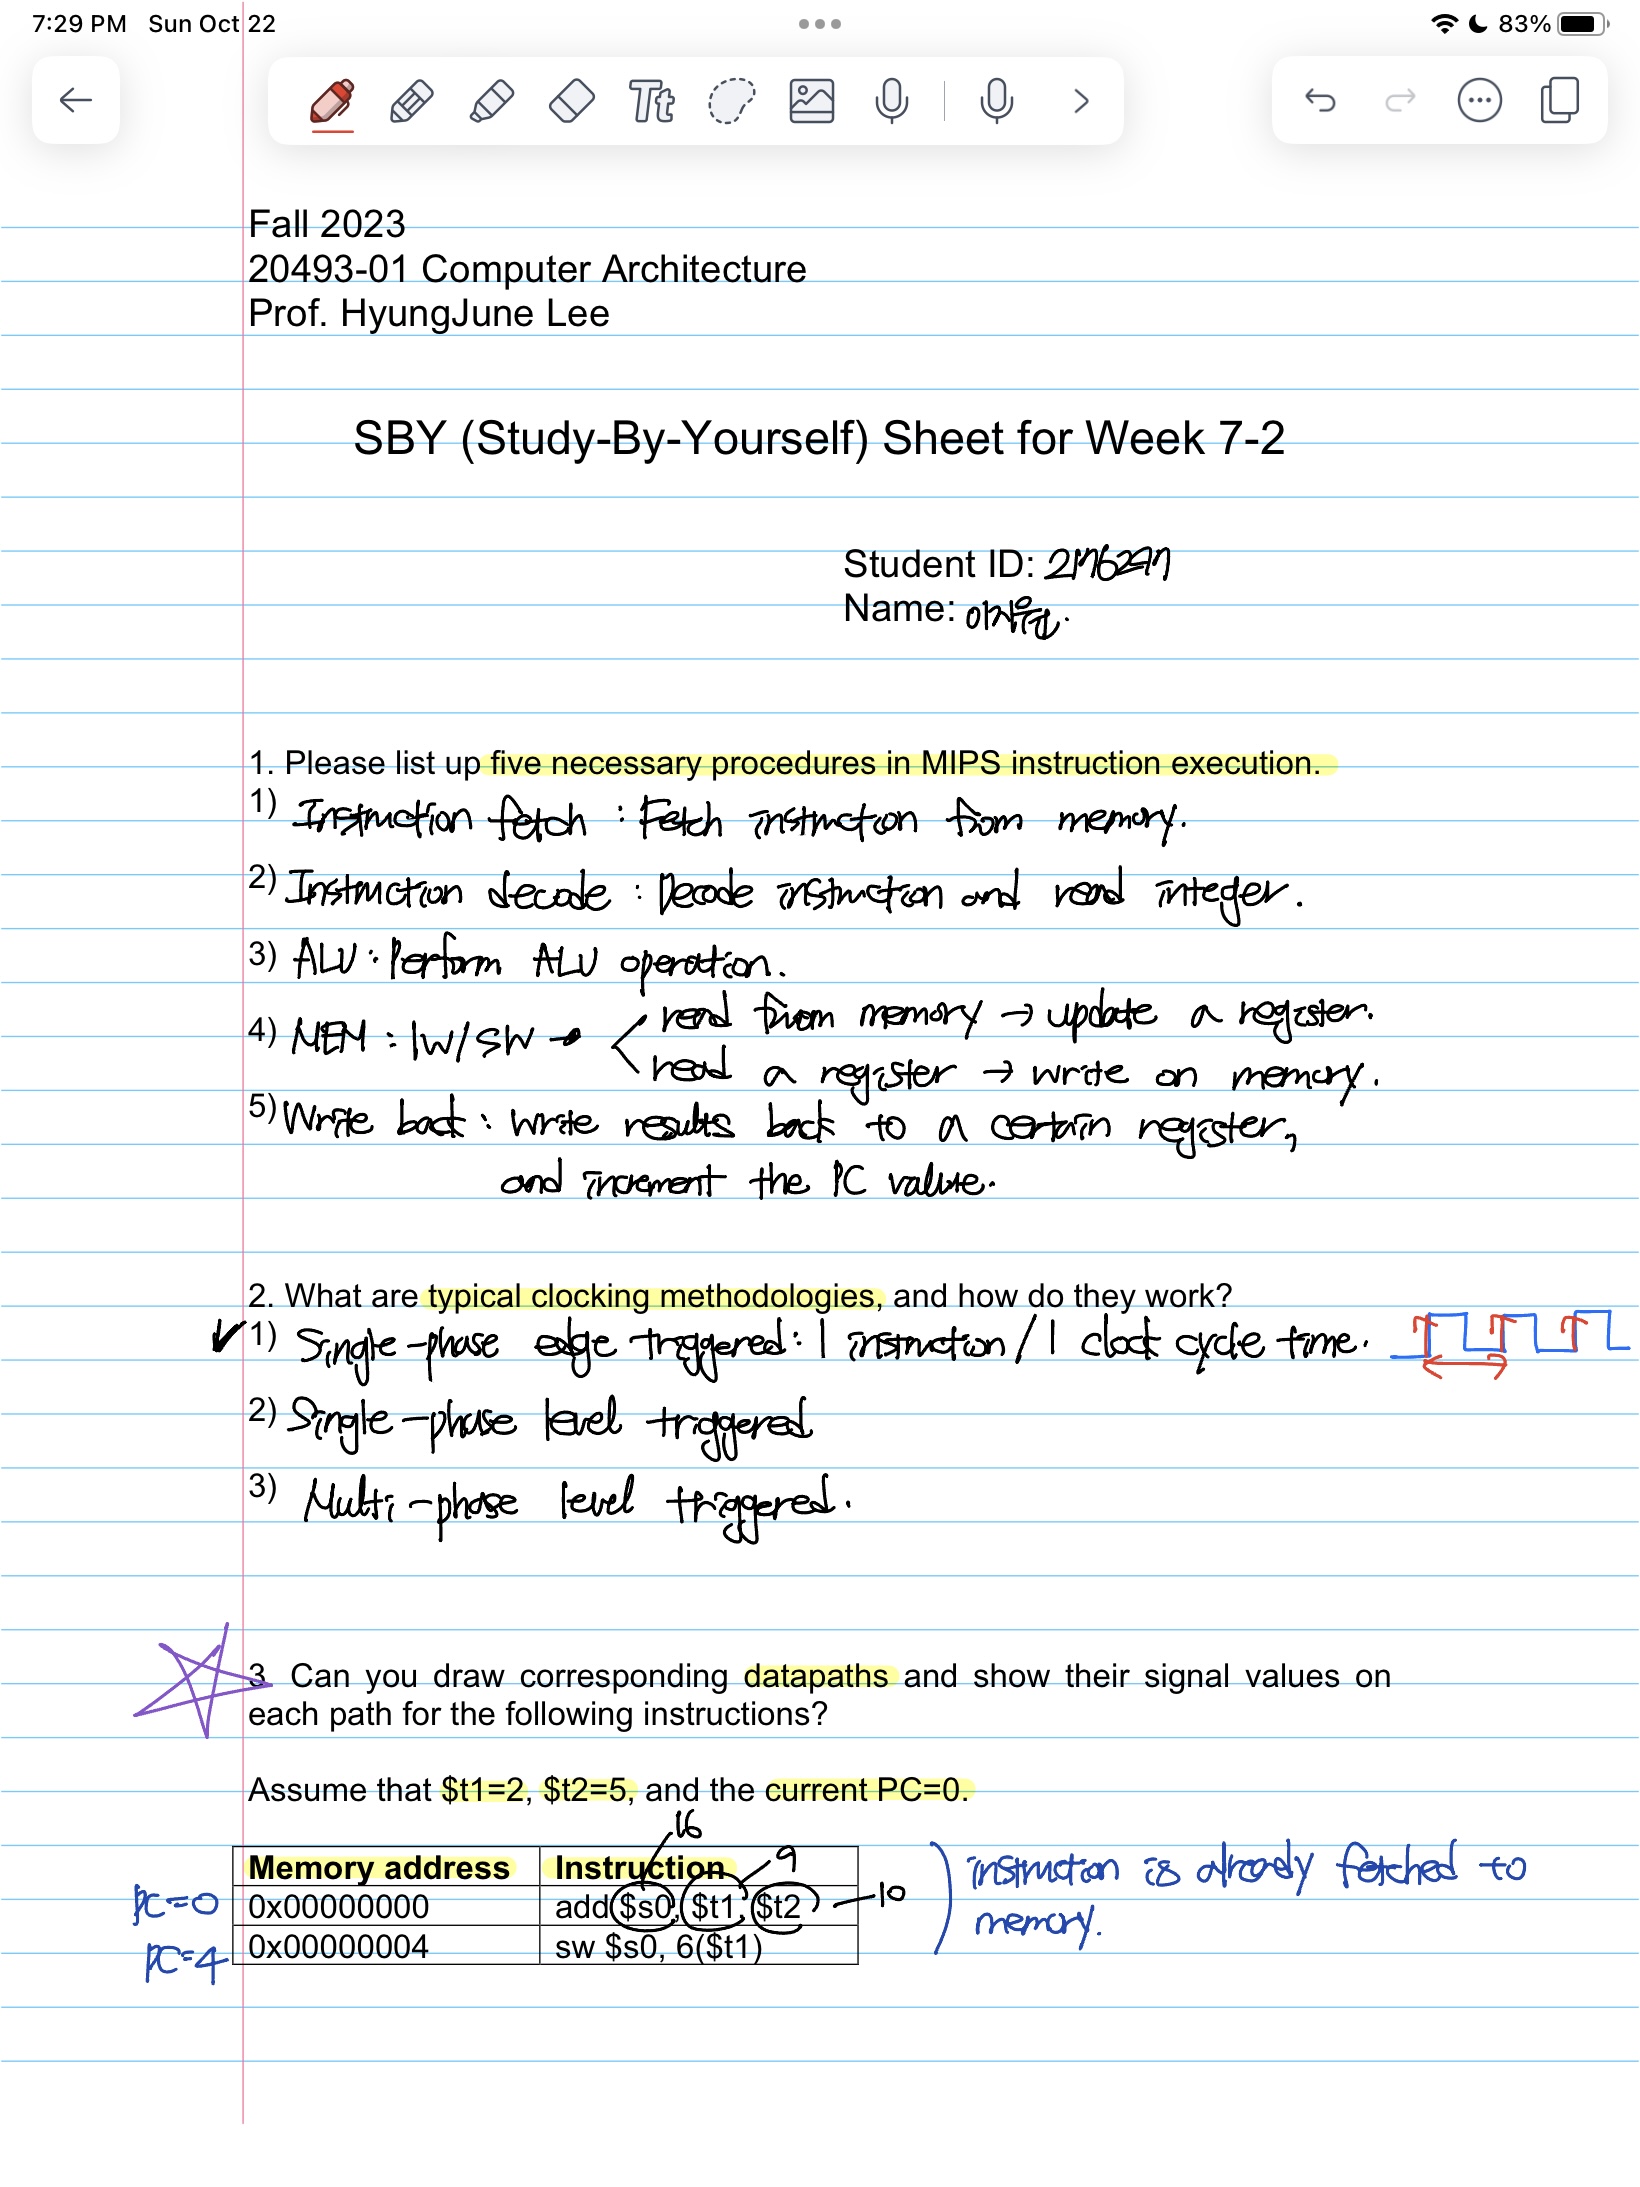 7:29 PM Sun Oct 22
83%
Tt
Fall 2023
20493-01 Computer Architecture
Prof. HyungJune Lee
SBY (Study-By-Yourself) Sheet for Week 7-2
Student ID:
Name:
1. Please list up five necessary procedures in MIPS instruction execution.
1) Instruction fetch : Fetch instruction from memory.
2) Instruction decode : Decode instruction and read integer.
3) ALU : Perform ALU operation.
4) MEM : lw/sw → read from memory → update a register.
read a register → write on memory.
5) Write back : write results back to a certain register,
and increment the PC value.
2. What are typical clocking methodologies, and how do they work?
✓ 1) Single-phase edge triggered : 1 instruction / 1 clock cycle time.
2) Single-phase level triggered
3) Multi-phase level triggered.
3. Can you draw corresponding datapaths and show their signal values on
each path for the following instructions?
Assume that $t1=2, $t2=5, and the current PC=0.
16
Memory address Instruction 9
PC=0 0x00000000 add $s0, $t1, $t2 10
PC=4 0x00000004 sw $s0, 6($t1)
instruction is already fetched to
memory.